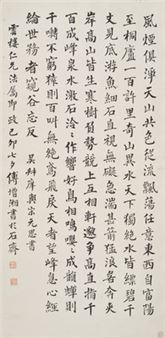 風煙俱淨天山共色從流飄蕩任意東西自富陽
至桐廬一百許里奇山異水天下獨絕水皆縹碧千
丈見底游魚細石直視無礙急湍甚箭猛浪若奔夾
岸高山皆生寒樹負勢競上互相軒邈爭高直指千
百成峰泉水激石泠泠作響好鳥相鳴嚶嚶成韻蟬則
千轉不窮猿則百叫無絕鳶飛戾天者望峰息心經
綸世務者窺谷忘反 吳叔庠與宋元思書
雲樓仁兄法屬即政己卯七夕傅增湘書於石齋